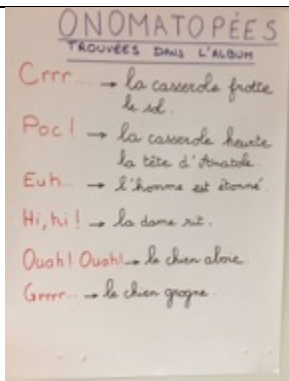 ONOMATOPÉES
TROUVÉES DANS L'ALBUM
Crrr... → la casserole frotte
le sol.
Poc! → la casserole heurte
la tête d'Anatole.
Euh... → l'homme est étonné.
Hi, hi! → la dame rit.
Ouah! Ouah! → le chien aboie.
Grrrr... → le chien grogne.